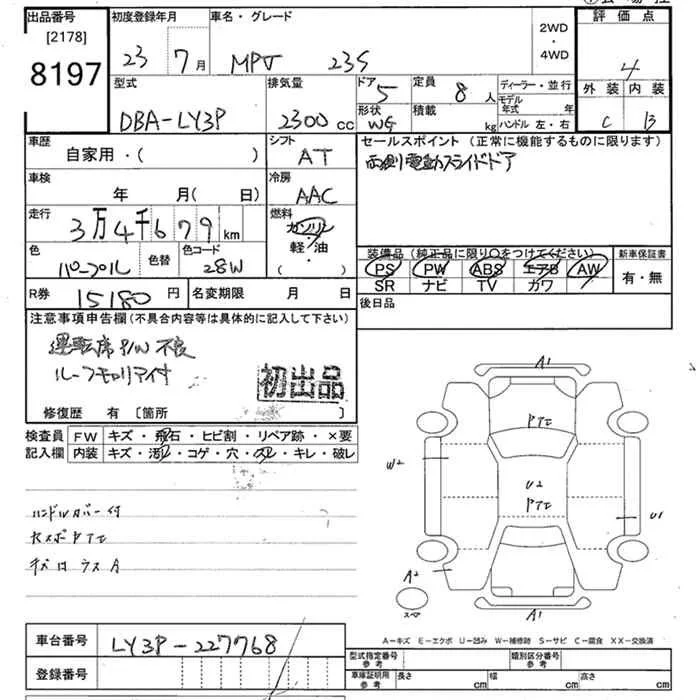 出品番号 初度登録年月 車名・グレード 2WD・4WD 評価点
[2178]
8197
23 7月 MPV 23S 4
型式 排気量 ドア 5 定員 8人 ディーラー・並行 外装 内装
DBA-LY3P 2300cc 形状 WG 積載 kg モデル年式 年 C B
ハンドル 左・右
車歴 自家用・( ) シフト AT セールスポイント(正常に機能するものに限ります)
両側電動スライドドア
車検 年 月(日) 冷房 AAC
走行 3万4千679km 燃料 ガソリン・軽油( )
色 パープル 色替 色コード 28W
装備品(純正品に限り○をつけてください) 新車保証書
PS PW ABS エアB AW 有・無
SR ナビ TV カワ
R券 15180円 名変期限 月 日 後日品
注意事項申告欄(不具合内容等は具体的に記入して下さい)
運転席P/W不良
初出品
修復歴 有 [箇所 ]
検査員 FW キズ・飛石・ヒビ割・リペア跡・×要
記入欄 内装 キズ・汚・コゲ・穴・スレ・キレ・破レ
ハンドルカバー付
A1
PTE
W2
U2
PTE
U1
A2
スペア
A1
A-キズ E-エクボ U-凹み W-補修跡 S-サビ C-腐食 XX-交換済
車台番号 LY3P-227768
登録番号
型式指定番号 参考 類別区分番号 参考
車庫証明用 参考 長さ cm 幅 cm 高さ cm